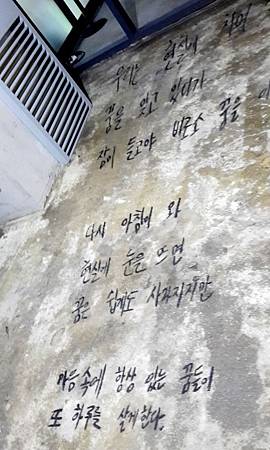 우리는 현실에
꿈을 잊고 있다가
잠이 들고야 비로소 꿈을
다시 아침이 와
현실에 눈을 뜨면
꿈은 쉽게도 사라지지만
마음 속에 항상 있는 꿈들이
또 하루를 살게 한다.